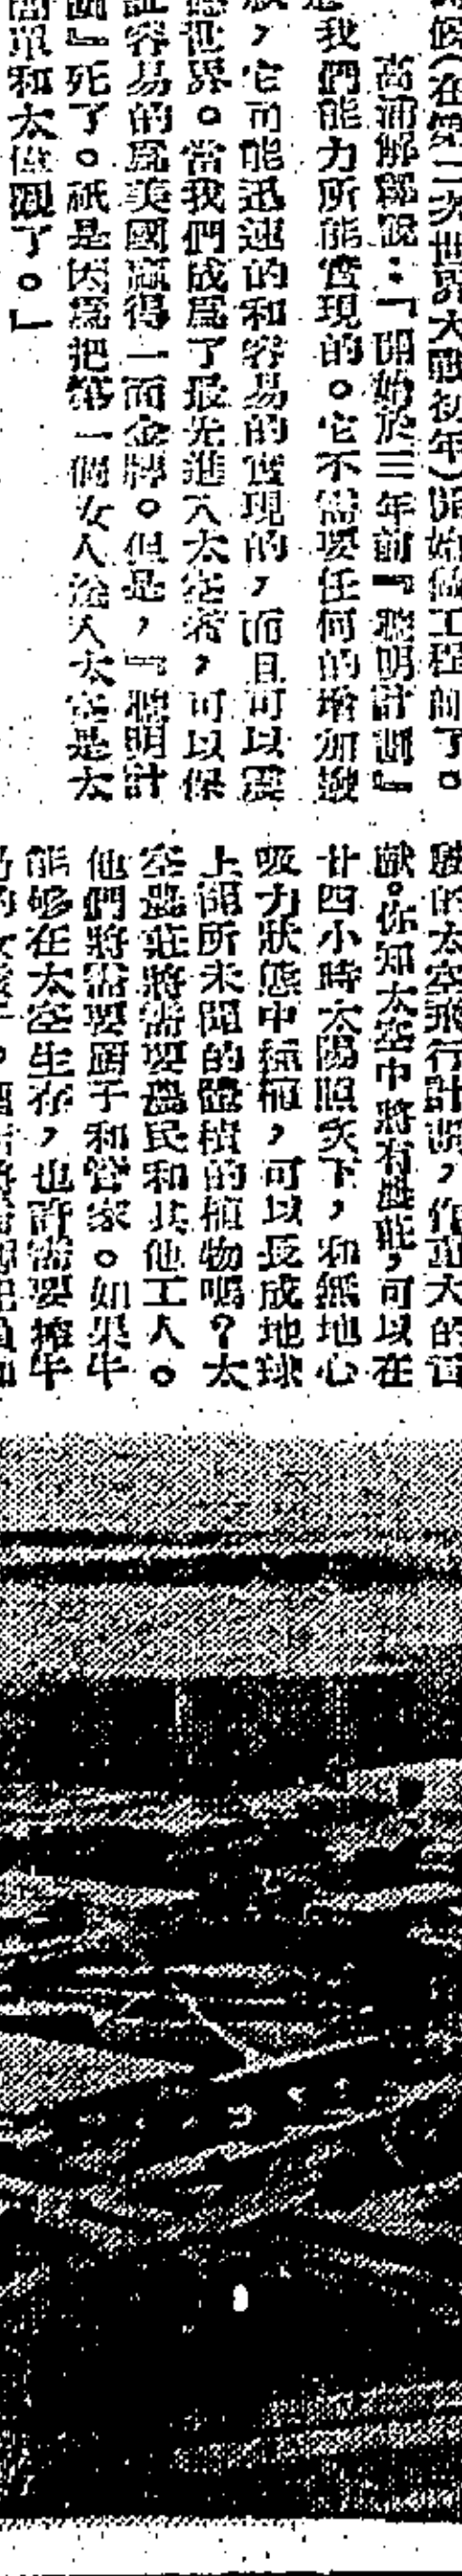 候（在第二次世界大戰初年）開始做工程師了。
高浦解釋說：「開始於三年前『聰明計劃』
我們能力所能實現的。它不需要任何的增加撥
，它可能迅速的和容易的實現的，而且可以震
世界。當我們成爲了最先進入太空者，可以保
證容易的爲美國贏得一面金牌。但是，『聰明計
劃』死了。祇是因爲把第一個女人送入太空是太
簡單和太偉觀了。」
的太空飛行計劃，作重大的貢
獻。你知太空中將有農莊，可以在
廿四小時太陽照灸下，和無地心
吸力狀態中種植，可以長成地球
上聞所未聞的體積的植物嗎？太
空農莊將需要農民和其他工人。
他們將需要厨子和管家。如果牛
能够在太空生存，也許需要搾牛
奶的女孩子。